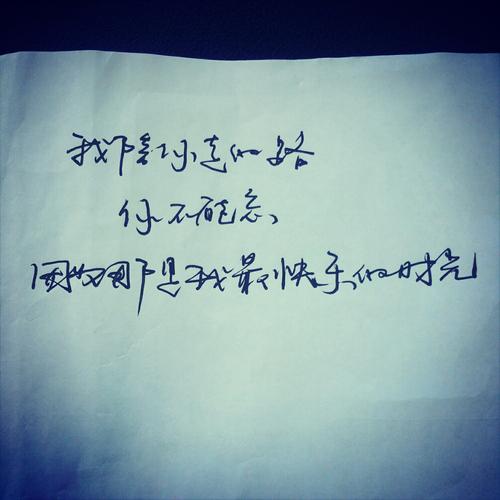 我陪你走的路
你不能忘
因为那是我最快乐的时光